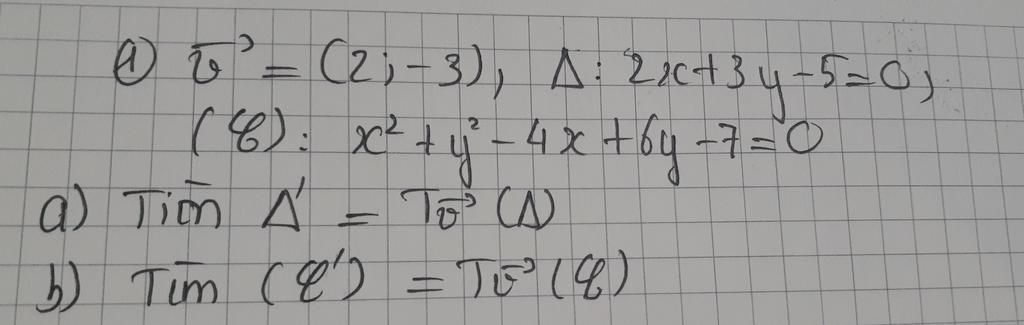 ① v⃗ = (2; -3), Δ: 2x + 3y - 5 = 0;
(C): x² + y² - 4x + 6y - 7 = 0
a) Tìm Δ' = Tv⃗ (Δ)
b) Tìm (C') = Tv⃗ (C)